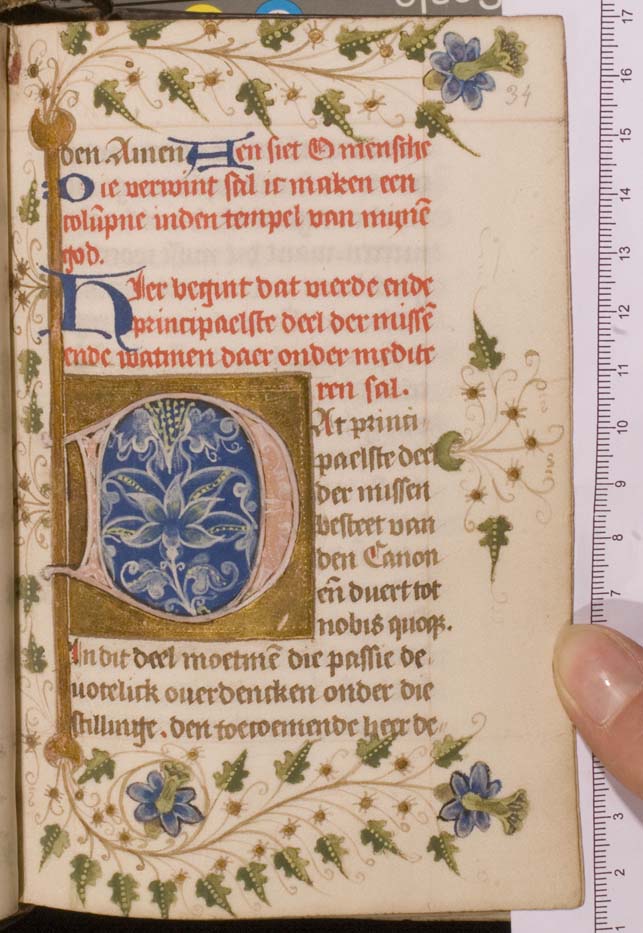 34
den Amen Aen siet O mensche
Die verwint sal ic maken een
colūpne inden tempel van mynē
god.
Hier begint dat vierde ende
principaelste deel der missē
ende watmen daer onder medite
ren sal.
DAt princi
paelste deel
der missen
besteet van
den Canon
eñ duert tot
nobis quoqꝫ.
In dit deel moetmē die passie de
uotelick ouerdencken onder die
stillinge. den toecoemende heer de
17
16
15
14
13
12
11
10
9
8
7
3
2
1